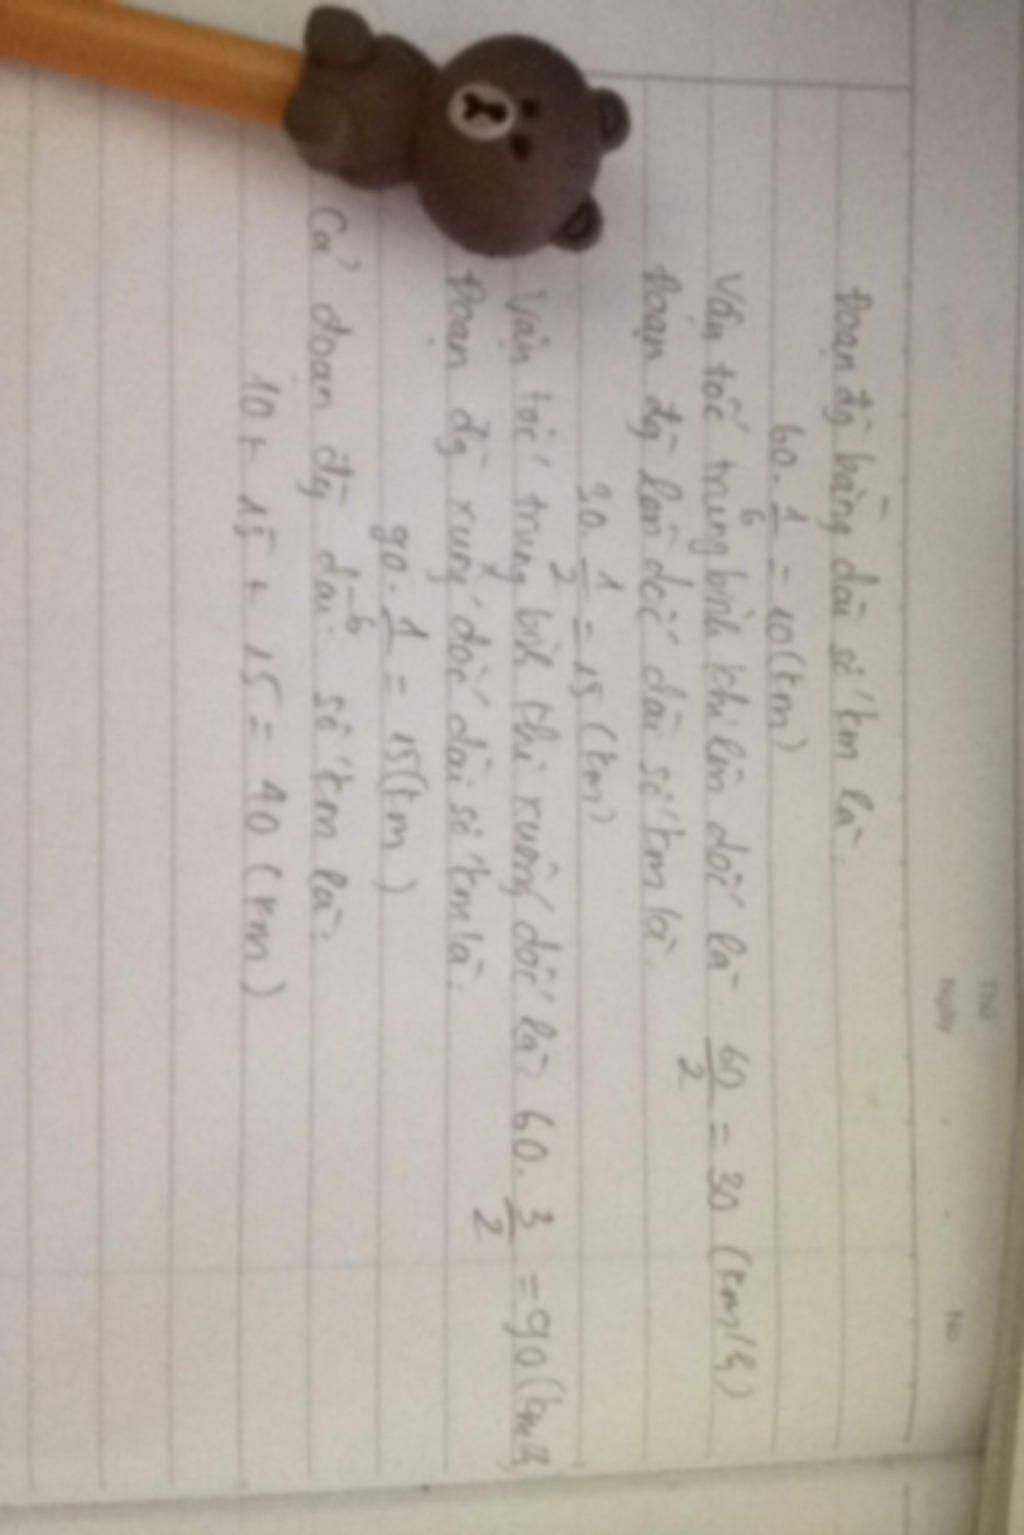 Thứ
Ngày
No.
Đoạn đg bằng dài số km là:
60. 1/6 = 10 (km)
Vận tốc trung bình khi lên dốc là: 60/2 = 30 (km/h)
Đoạn đg lên dốc dài số km là:
30. 1/2 = 15 (km)
Vận tốc trung bìh khi xuống dốc là: 60. 3/2 = 90 (km/h)
Đoạn đg xuống dốc dài số km là:
90. 1/6 = 15 (km)
Cả đoạn đg dài số km là:
10 + 15 + 15 = 40 (km)